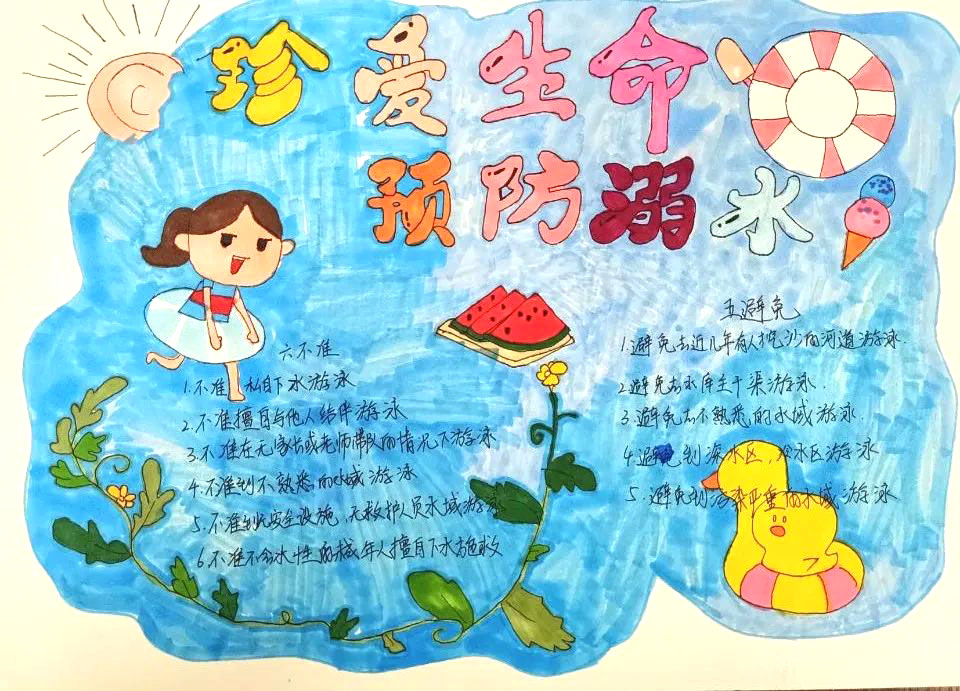 珍爱生命
预防溺水
六不准
1.不准私自下水游泳
2.不准擅自与他人结伴游泳
3.不准在无家长或老师带队的情况下游泳
4.不准到不熟悉的水域游泳
5.不准到无安全设施、无救护人员水域游泳
6.不准不会水性的成年人擅自下水施救
五避免
1.避免去近几年有人挖沙的河道游泳.
2.避免去水库主干渠游泳.
3.避免去不熟悉的水域游泳.
4.避免到深水区,冷水区游泳
5.避免到污染严重的水域游泳